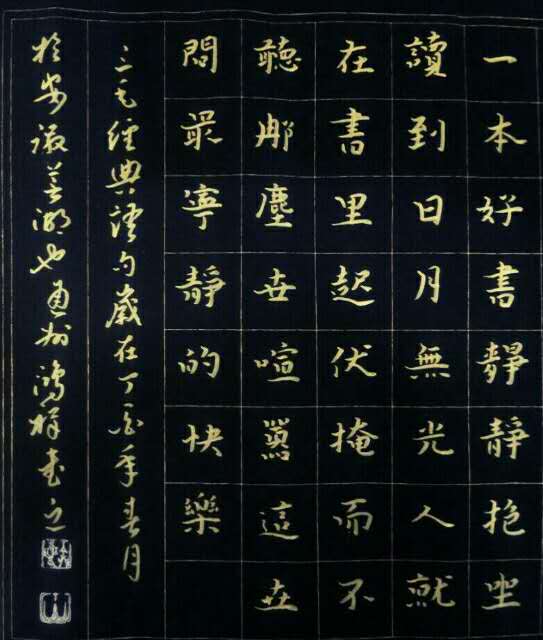 一本好書靜靜抱坐
讀到日月無光人就
在書里起伏掩而不
聽那塵世喧囂這世
間最寧靜的快樂
三毛經典語句歲在丁酉年春月
於安徽蕪湖也鴻祥書之